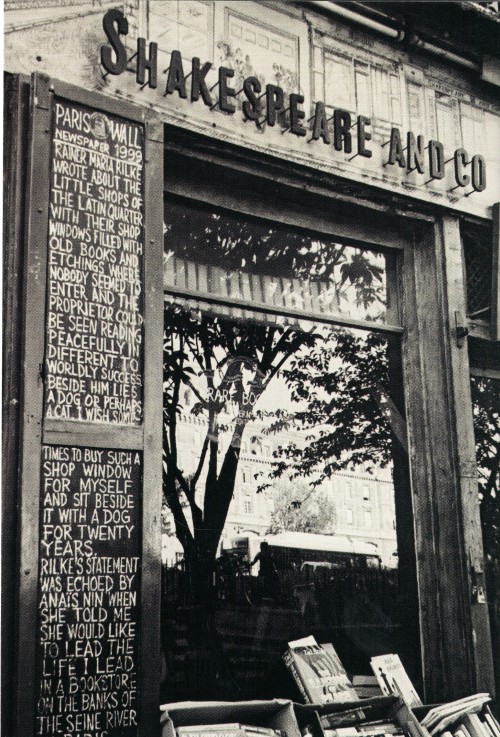 SHAKESPEARE AND CO
PARIS WALL
NEWSPAPER 1999
RAINER MARIA RILKE
WROTE ABOUT THE
LITTLE SHOPS OF
THE LATIN QUARTER
WITH THEIR SHOP
WINDOWS FILLED WITH
OLD BOOKS AND
ETCHINGS WHERE
NOBODY SEEMED TO
ENTER AND THE
PROPRIETOR COULD
BE SEEN READING
PEACEFULLY IN
DIFFERENT TO
WORLDLY SUCCESS
BESIDE HIM LIES
A DOG OR PERHAPS
A CAT. I WISH SOME
TIMES TO BUY SUCH A
SHOP WINDOW
FOR MYSELF
AND SIT BESIDE
IT WITH A DOG
FOR TWENTY
YEARS
RILKE'S STATEMENT
WAS ECHOED BY
ANAÏS NIN WHEN
SHE TOLD ME
SHE WOULD LIKE
TO LEAD THE
LIFE I LEAD
IN A BOOKSTORE
ON THE BANKS OF
THE SEINE RIVER
PARIS
RARE BOO